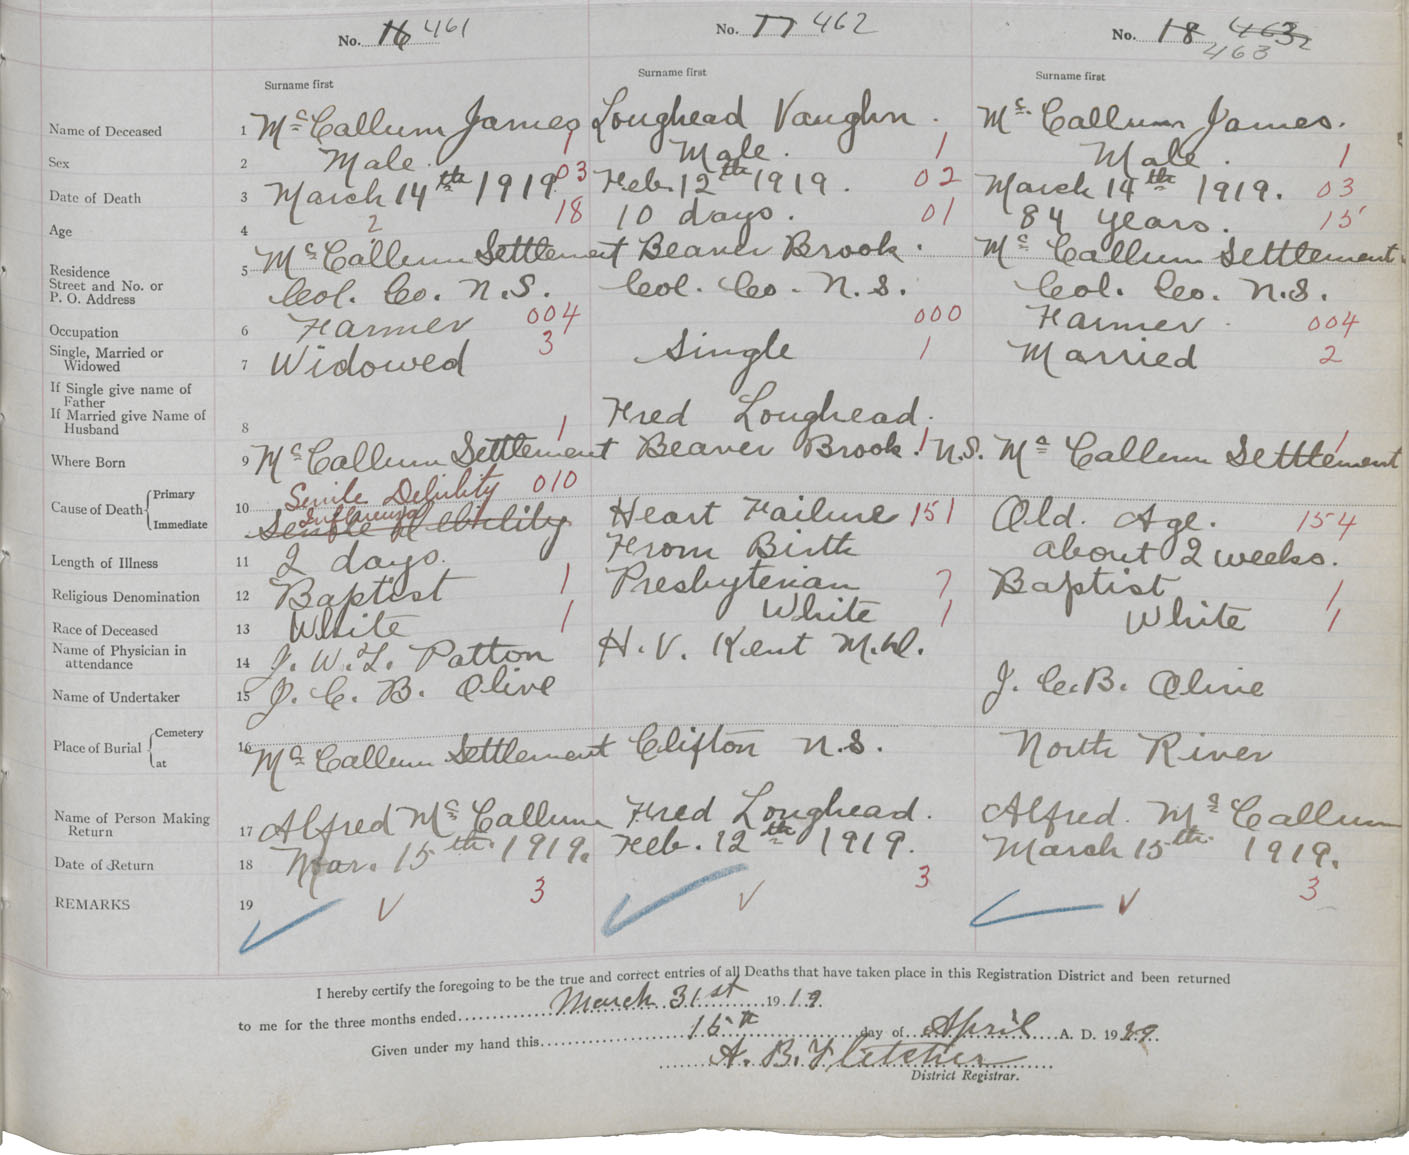 No. 16 461 No. 17 462 No. 18 4632
463
Surname first Surname first Surname first
Name of Deceased 1 McCallum James Loughead Vaughn. Mc. Callum James.
Sex 2 Male. 1 Male. 1 Male. 1
Date of Death 3 March 14th 1919 03 Feb. 12th 1919. 02 March 14th 1919. 03
Age 4 2 18 10 days. 01 84 years. 15
Residence
Street and No. or
P. O. Address
5 Mc Callum Settlement Beaver Brook. Mc Callum Settlement
Col. Co. N.S. Col. Co. N.S. Col. Co. N.S.
Occupation 6 Farmer 004 000 Farmer 004
Single, Married or
Widowed
7 Widowed 3 Single 1 Married 2
If Single give name of
Father
If Married give Name of
Husband
8 1 Fred Loughead. 1
Where Born 9 Mc Callum Settlement Beaver Brook. 1 N.S. Mc Callum Settlement
Cause of Death Primary
Immediate
10 Senile Debility 010
Influenza
Senile Debility Heart Failure 151 Old. Age. 154
Length of Illness 11 2 days. From Birth about 2 weeks.
Religious Denomination 12 Baptist 1 Presbyterian 7 Baptist 1
Race of Deceased 13 White 1 White 1 White 1
Name of Physician in
attendance
14 J. W. T. Patton H. V. Kent M.D.
Name of Undertaker 15 J. C. B. Olive J. C. B. Olive
Place of Burial Cemetery
at
16 Mc Callum Settlement Clifton N.S. North River
Name of Person Making
Return
17 Alfred Mc Callum Fred Loughead. Alfred. Mc Callum
Date of Return 18 Mar. 15th 1919. Feb. 12th 1919. March 15th 1919.
REMARKS 19 3 3 3
I hereby certify the foregoing to be the true and correct entries of all Deaths that have taken place in this Registration District and been returned
to me for the three months ended March 31st 1919
Given under my hand this 15th day of April A. D. 1919.
A. B. Fletcher
District Registrar.